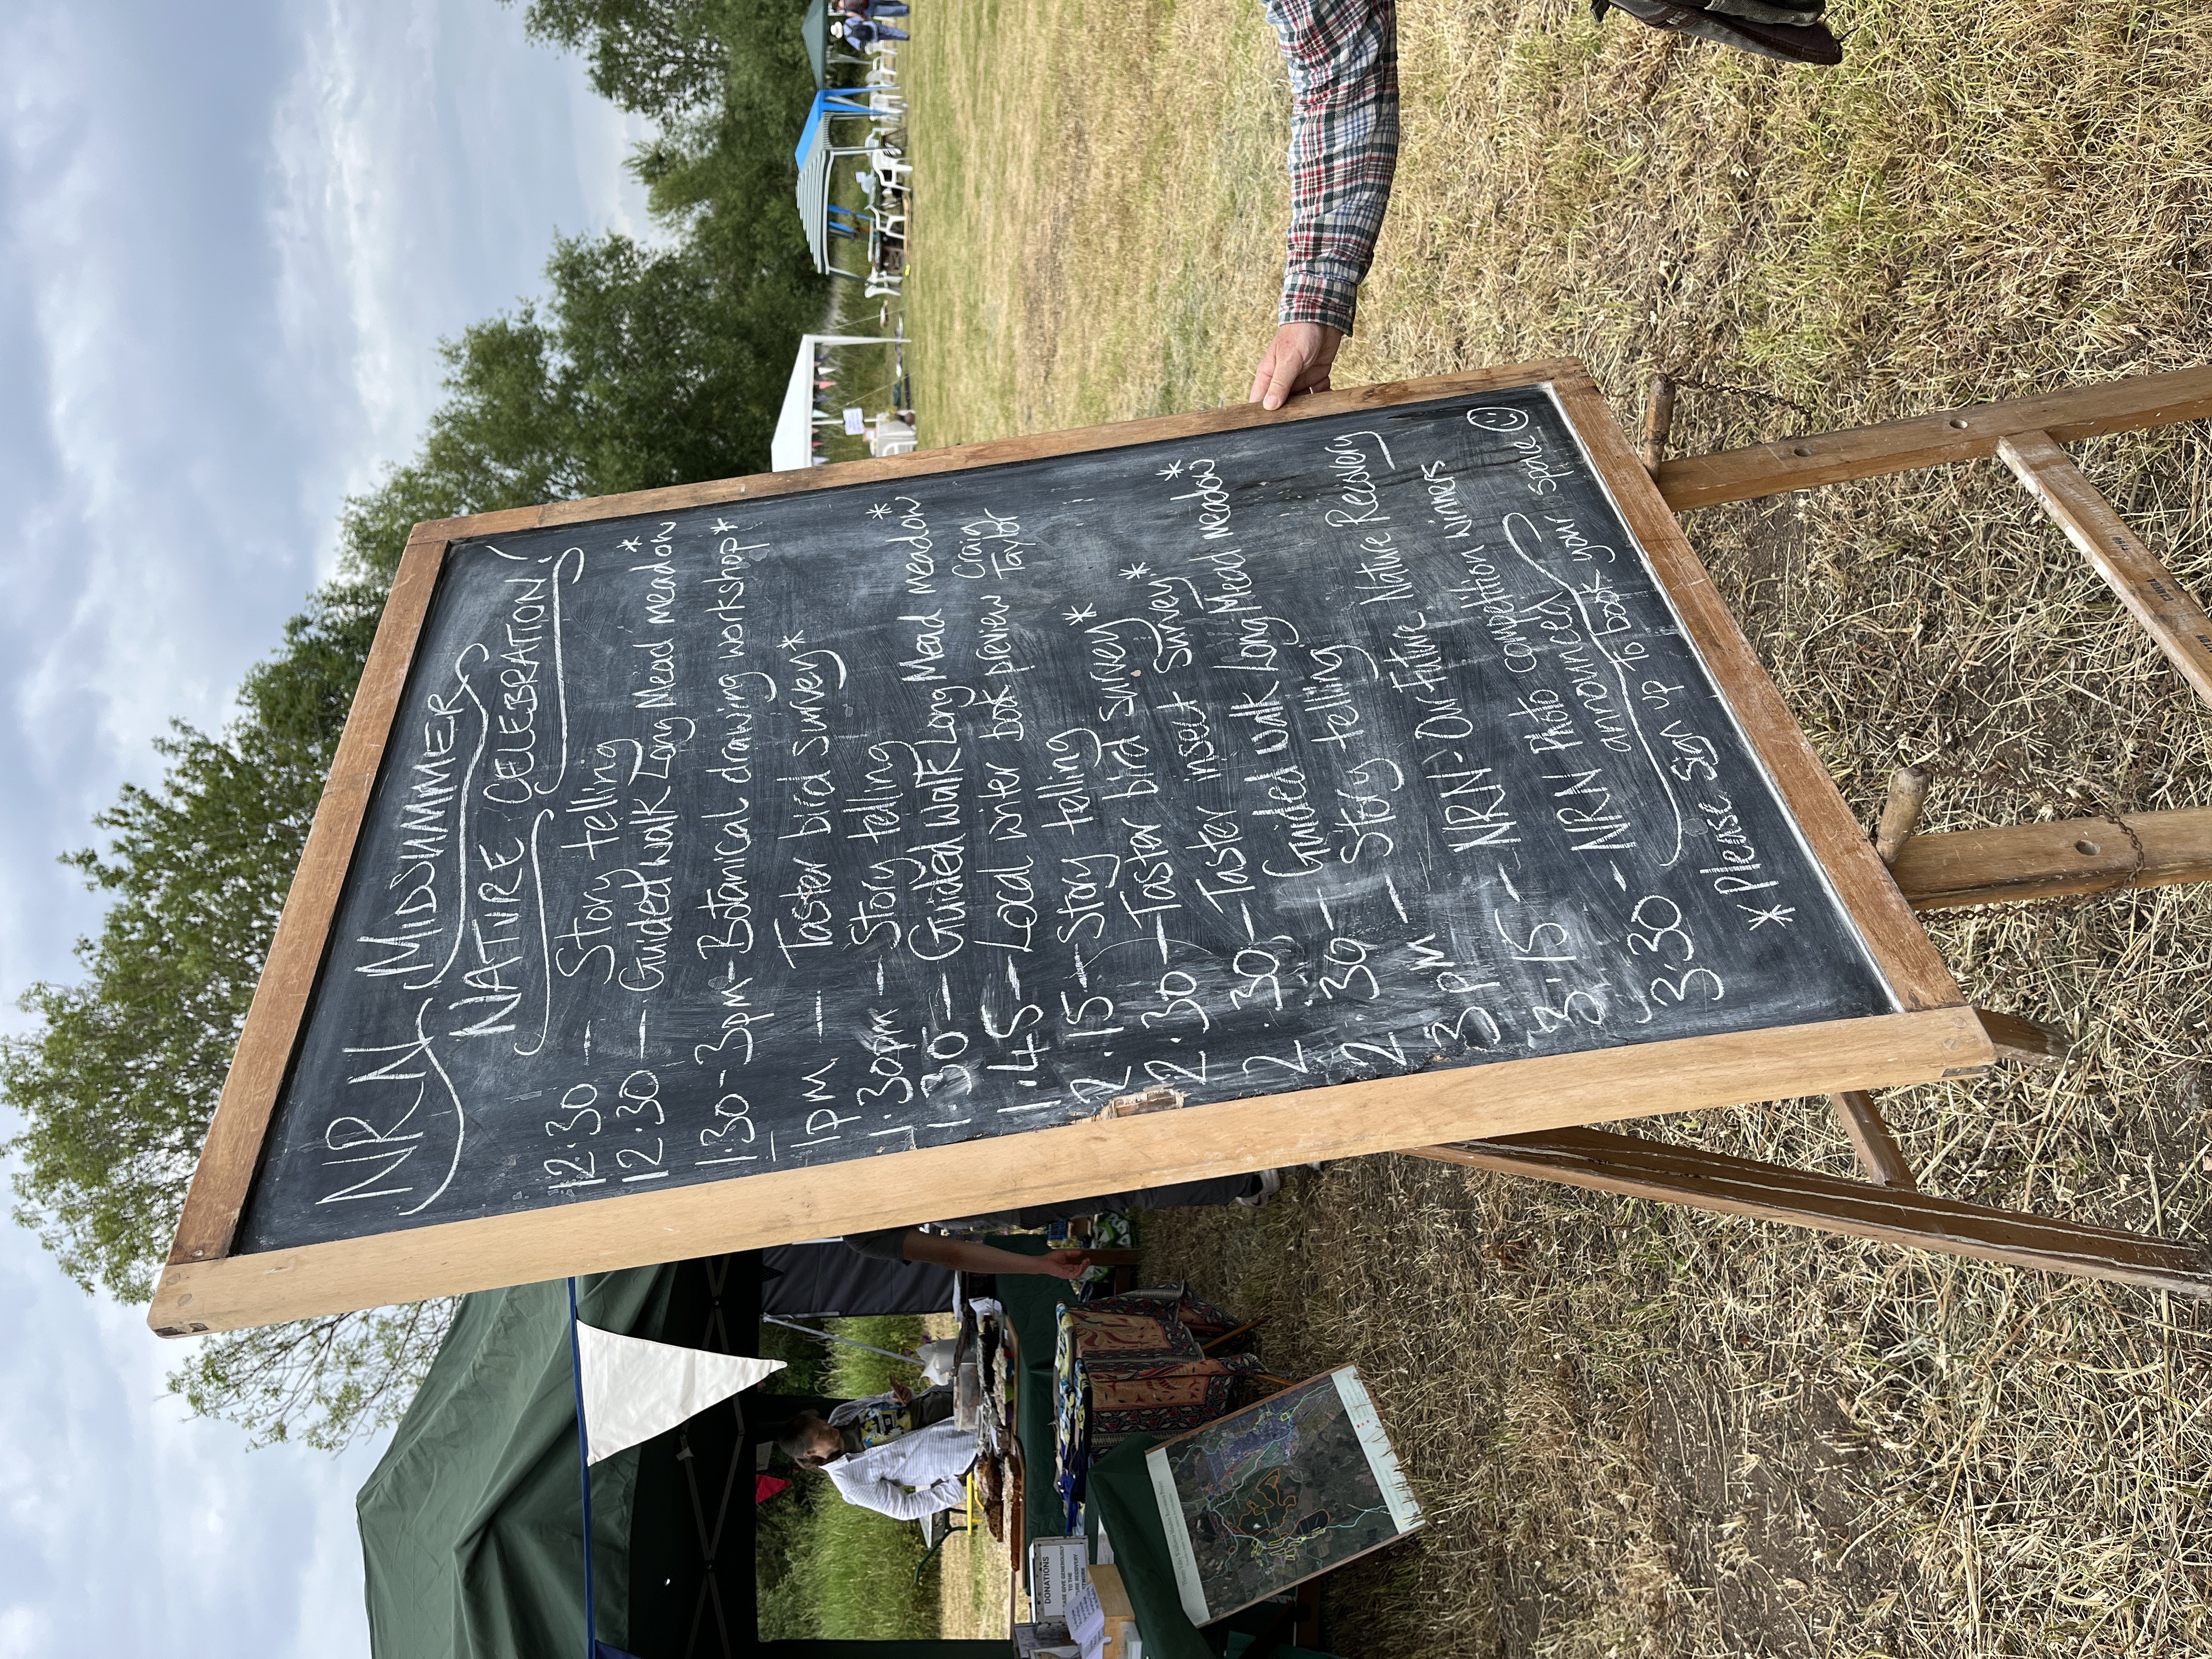 NRN MIDSUMMER
NATURE CELEBRATION!
12:30 — Story telling
12:30 — Guided walk Long Mead meadow*
1:30 - 3pm - Botanical drawing workshop*
1pm — Taster bird survey*
1:30pm — Story telling
1:30 — Guided walk Long Mead meadow*
1:45 — Local writer book preview Craig Taylor
2:15 — Story telling
2:30 — Taster bird survey*
2:30 — Taster insect survey*
2:30 — Guided walk Long Mead meadow*
3pm — Story telling
3:15 - NRN - Our future Nature Recovery
3:30 - NRN Photo competition winners
announced
*please sign up to book your space
DONATIONS
GIVE GENEROUSLY
TO THE